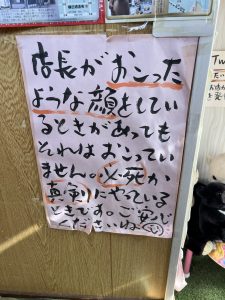 店長がおこった
ような顔をしてい
るときがあっても
それはおこってい
ません。必死か
真剣にやっている
ときです。ご安心
くださいね
Tw